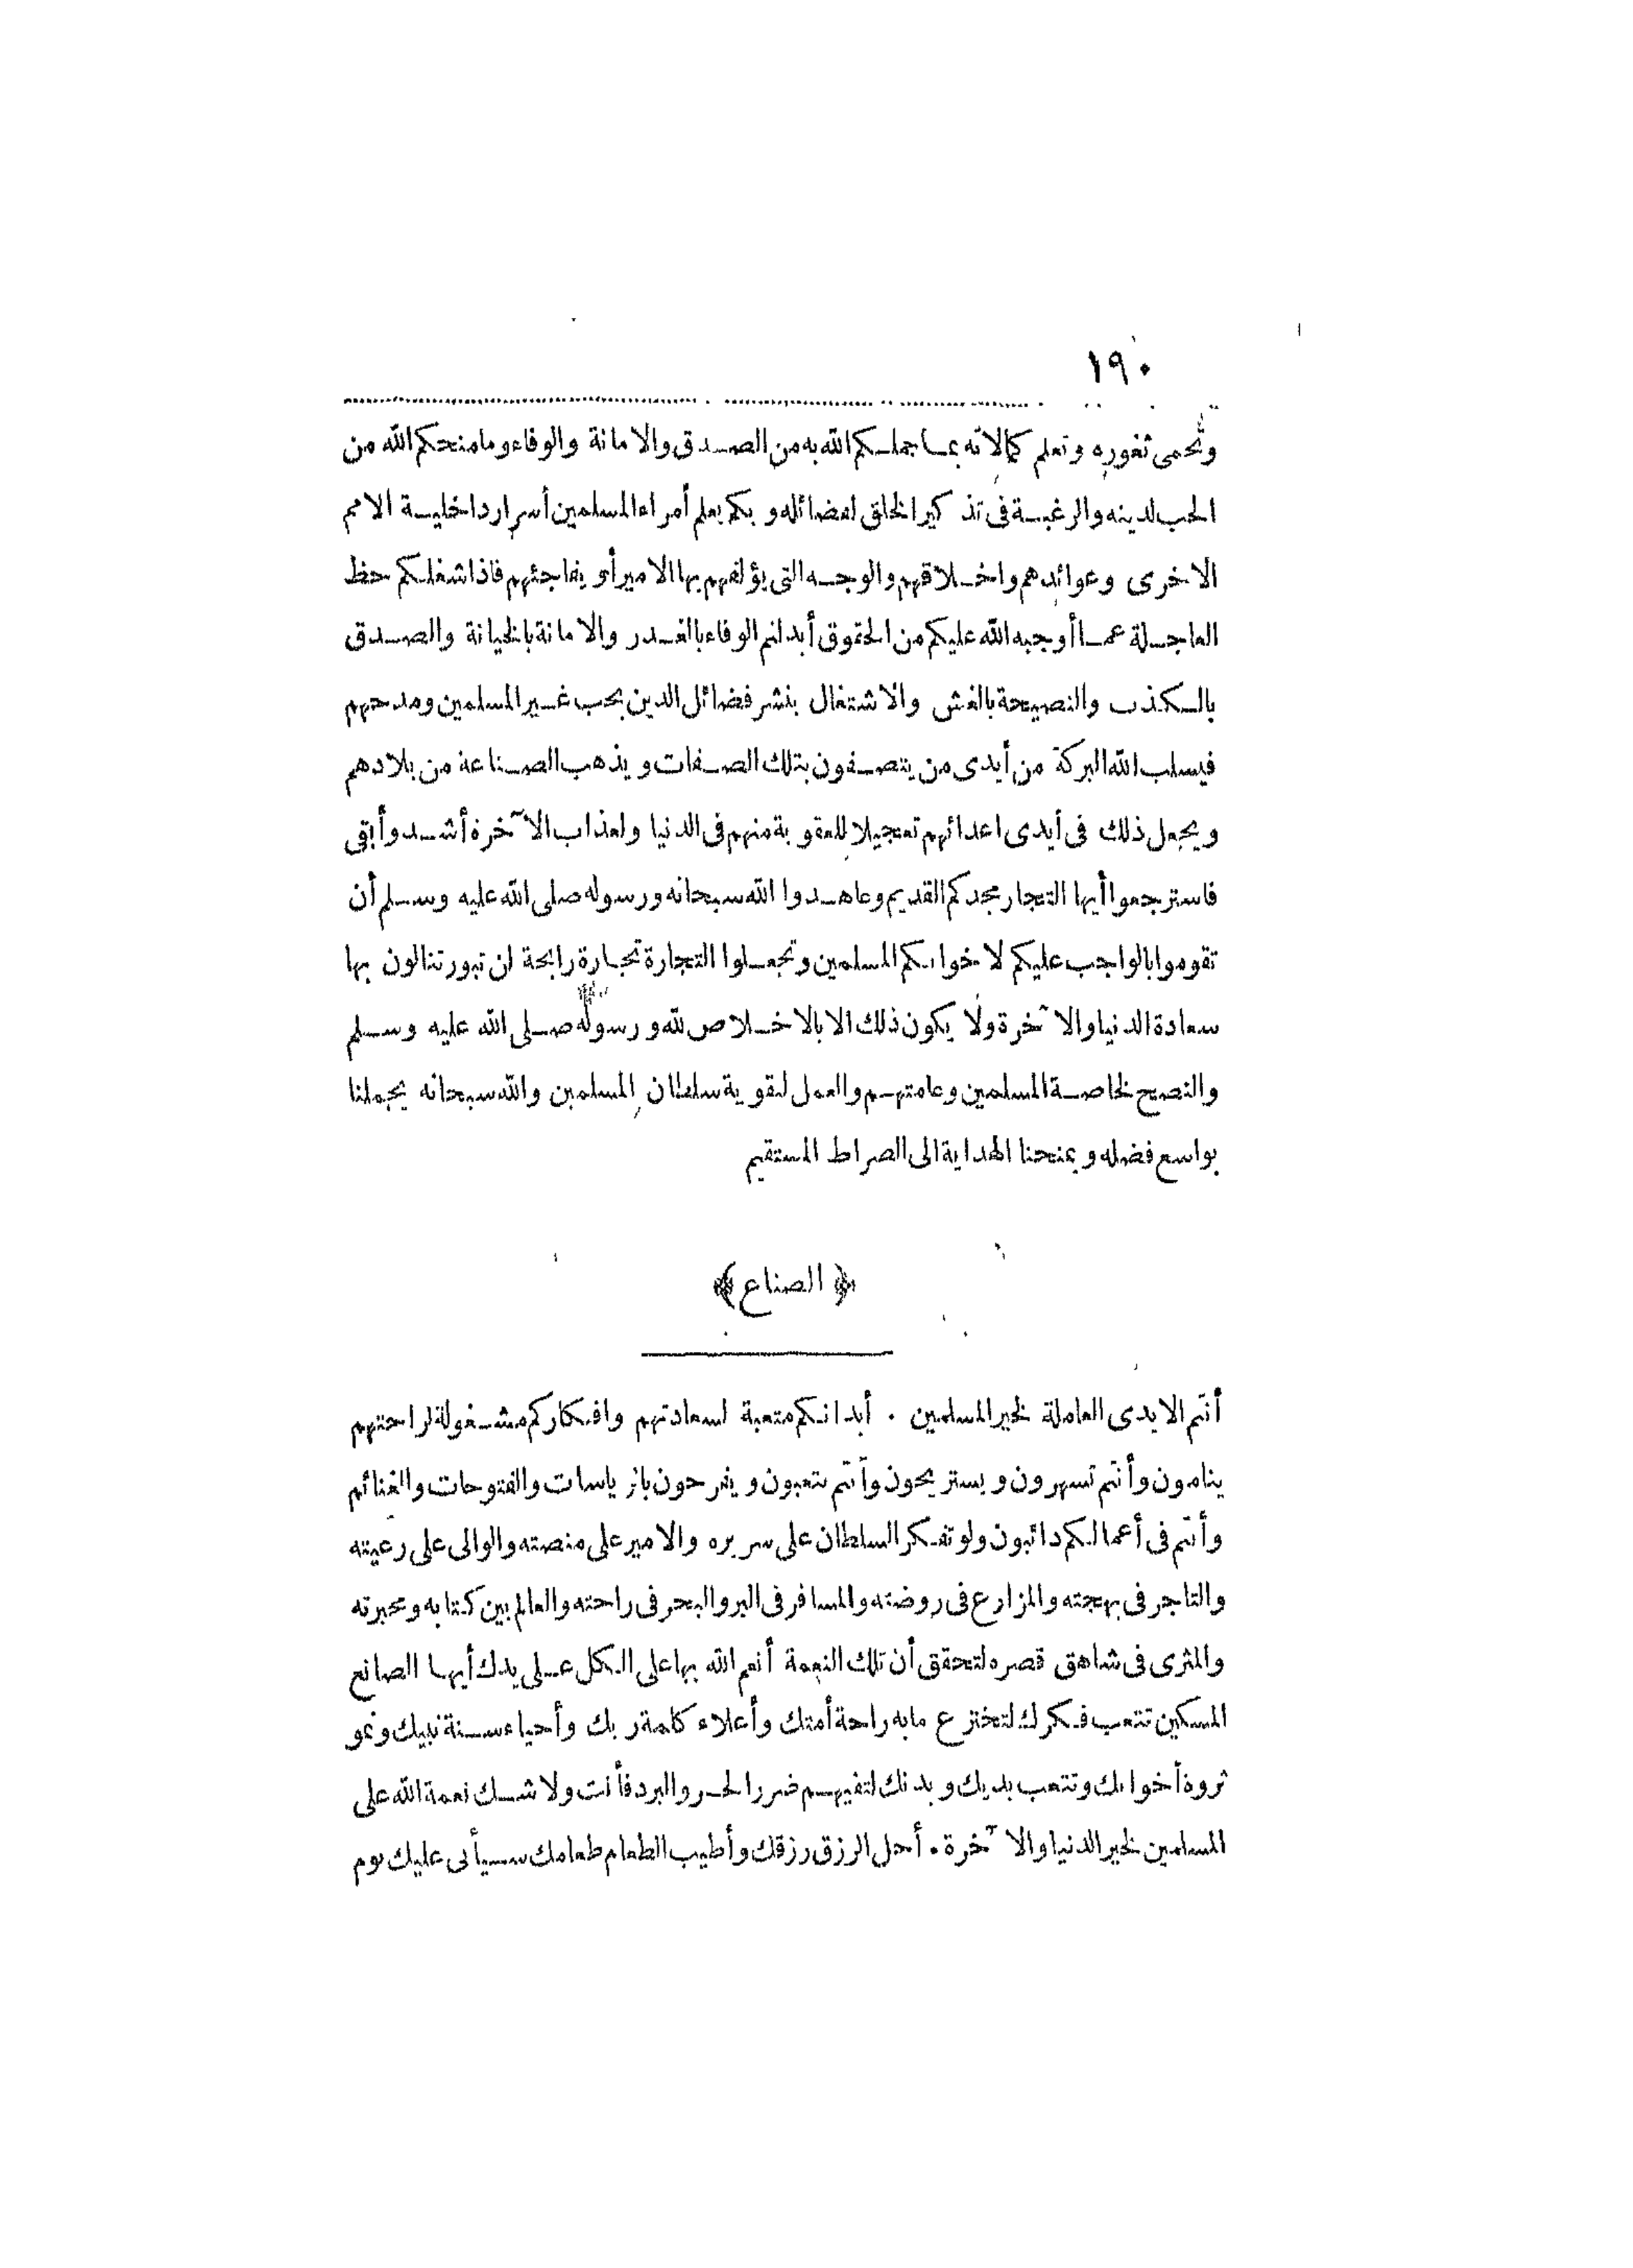 ١٩٠
وتحمى ثغوره وتعلم كمالاته بما جملكم الله به من الصدق والامانة والوفاء وما منحكم الله من
الحب لدينه والرغبة فى تذكير الخلق لفضائله وبكم يعلم أمراء المسلمين أسرار داخلية الامم
الاخرى وعوائدهم واخلاقهم والوجه التى يؤلفهم بها الامير أو يفاجئهم فاذا شغلكم حظ
العاجلة عما أوجبه الله عليكم من الحقوق أبدلتم الوفاء بالغدر والامانة بالخيانة والصدق
بالكذب والنصيحة بالغش والاشتغال بنشر فضائل الدين بحب غير المسلمين ومدحهم
فيسلب الله البركة من أيدى من يتصفون بتلك الصفات ويذهب الصناعة من بلادهم
ويجعل ذلك فى أيدى اعدائهم تعجيلا للعقوبة منهم فى الدنيا ولعذاب الآخرة أشد وأبقى
فاسترجعوا أيها التجار مجدكم القديم وعاهدوا الله سبحانه ورسوله صلى الله عليه وسلم أن
تقوموا بالواجب عليكم لاخوانكم المسلمين وتجعلوا التجارة تجارة رابحة لن تبور تنالون بها
سعادة الدنيا والآخرة ولا يكون ذلك الا بالاخلاص لله ورسوله صلى الله عليه وسلم
والنصيح لخاصة المسلمين وعامتهم والعمل لتقوية سلطان المسلمين والله سبحانه يجملنا
بواسع فضله ويمنحنا الهداية الى الصراط المستقيم
﴿ الصناع ﴾
أنتم الايدى العاملة لخير المسلمين . أبدانكم متعبة لسعادتهم وافكاركم مشغولة لراحتهم
ينامون وأنتم تسهرون ويستريحون وأنتم تتعبون ويفرحون بالرياسات والفتوحات والغنائم
وأنتم فى أعمالكم دائبون ولو تفكر السلطان على سريره والامير على منصته والوالى على رعيته
والتاجر فى بهجته والمزارع فى روضته والمسافر فى البر والبحر فى راحته والعالم بين كتابه ومحبرته
والمثرى فى شاهق قصره لتحقق أن تلك النعمة أنعم الله بها على الكل على يدك أيها الصانع
المسكين تتعب فكرك لتخترع ما به راحة أمتك وأعلاء كلمة ربك وأحياء سنة نبيك ونمو
ثروة أخوانك وتتعب يديك وبدنك لتقيهم ضرر الحر والبرد فأنت ولا شك نعمة الله على
المسلمين لخير الدنيا والآخرة . أحل الرزق رزقك وأطيب الطعام طعامك سيأتى عليك يوم